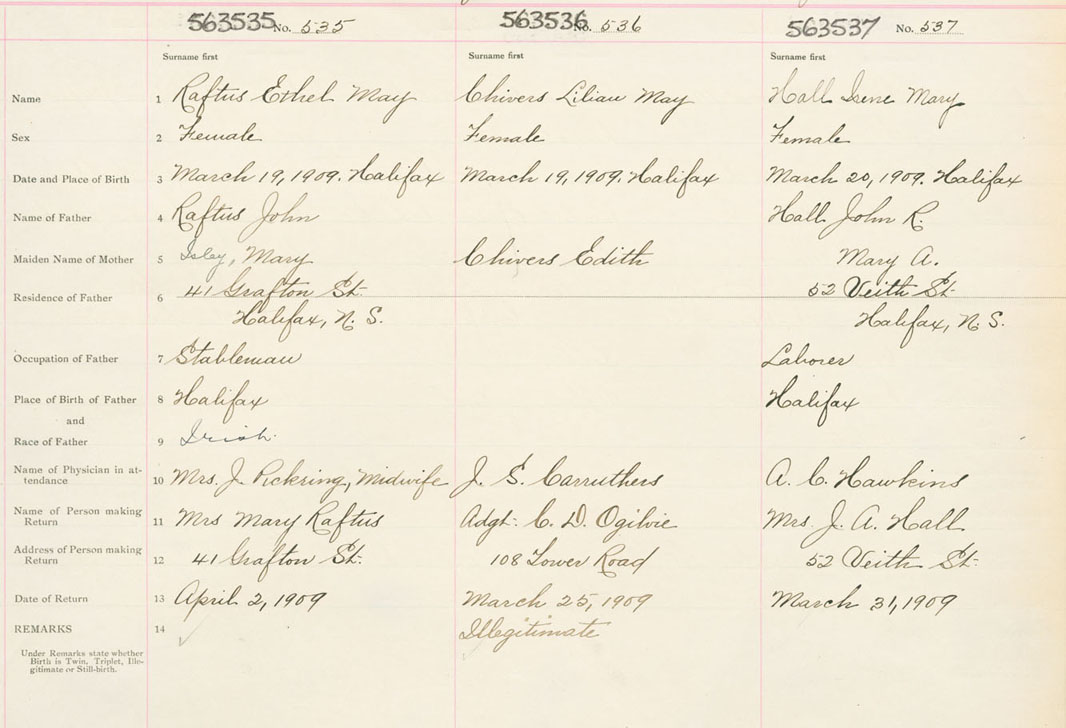 563535 No. 535 563536 No. 536 563537 No. 537
Surname first Surname first Surname first
Name 1 Raftus Ethel May Chivers Lilian May Hall Irene Mary
Sex 2 Female Female Female
Date and Place of Birth 3 March 19, 1909. Halifax March 19, 1909. Halifax March 20, 1909. Halifax
Name of Father 4 Raftus John Hall John R.
Maiden Name of Mother 5 Isley, Mary Chivers Edith Mary A.
Residence of Father 6 41 Grafton St. 52 Veith St.
Halifax, N. S. Halifax, N. S.
Occupation of Father 7 Stableman Laborer
Place of Birth of Father 8 Halifax Halifax
and
Race of Father 9 Irish
Name of Physician in at-
tendance 10 Mrs. J. Pickring, Midwife J. S. Carruthers A. C. Hawkins
Name of Person making
Return 11 Mrs Mary Raftus Adgt. C. D. Ogilvie Mrs. J. A. Hall
Address of Person making
Return 12 41 Grafton St. 108 Tower Road 52 Veith St.
Date of Return 13 April 2, 1909 March 25, 1909 March 31, 1909
REMARKS 14 Illegitimate
Under Remarks state whether
Birth is Twin, Triplet, Ille-
gitimate or Still-birth.